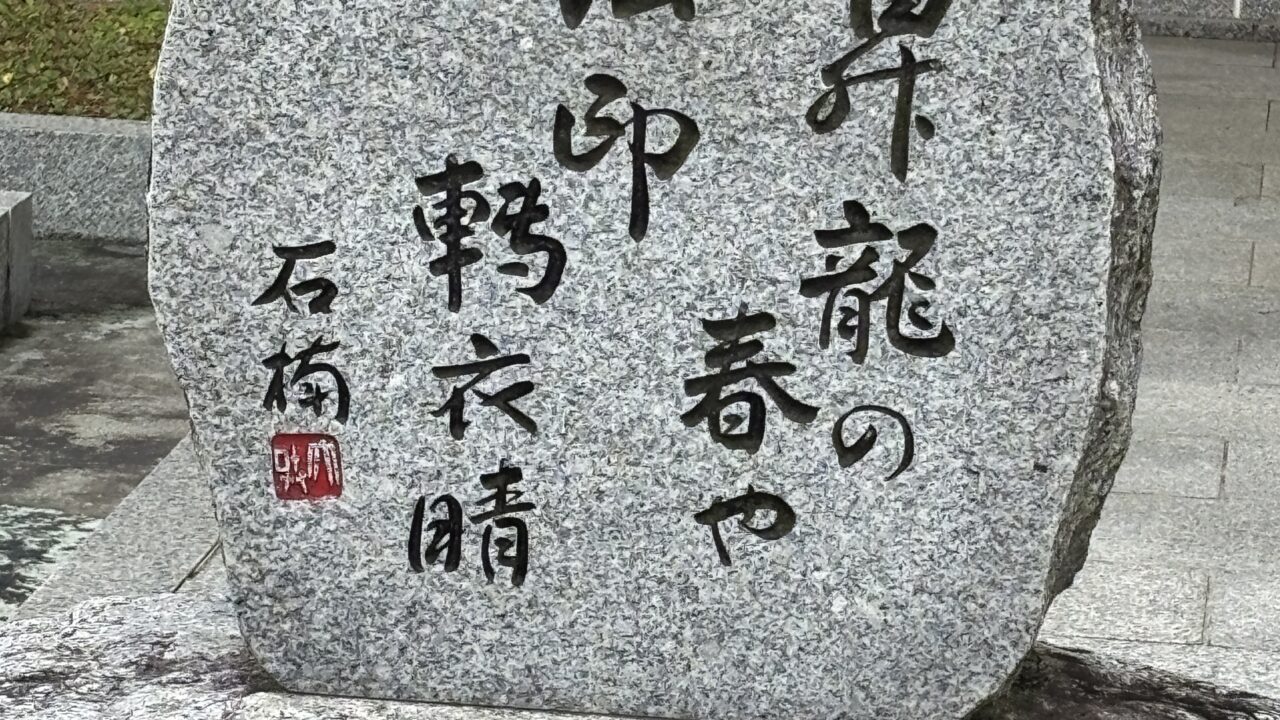 昇龍の
春や
印
轉衣晴
石楠